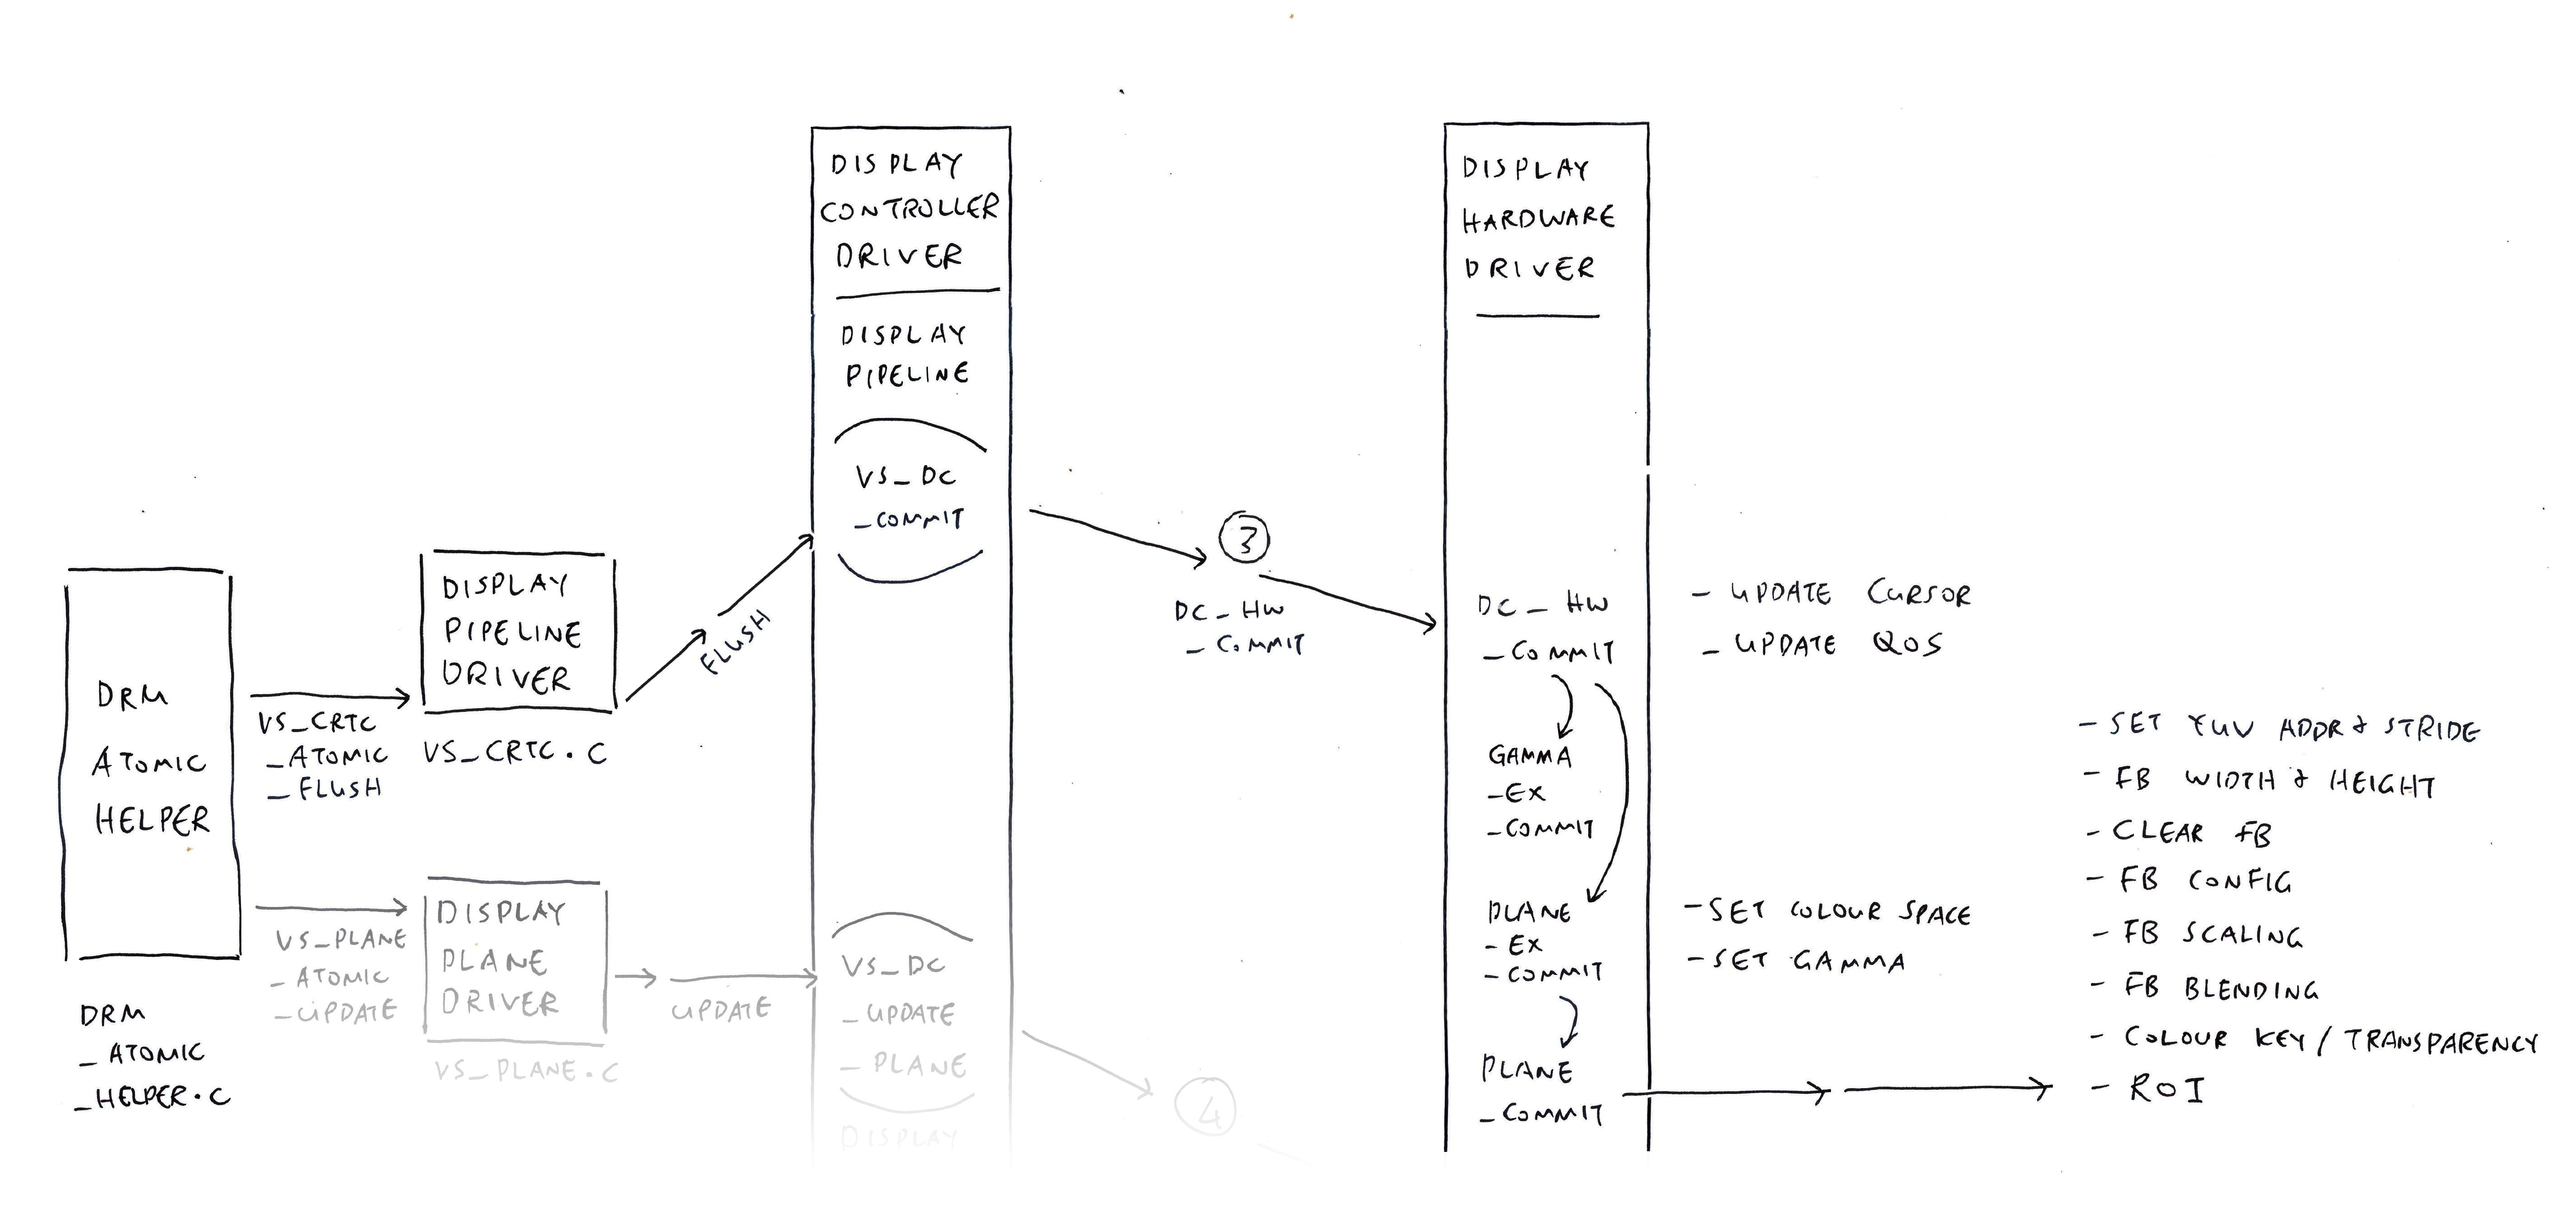 DRM
ATOMIC
HELPER
DRM
_ ATOMIC
_ HELPER.C
VS_CRTC
_ATOMIC
_ FLUSH
DISPLAY
PIPELINE
DRIVER
VS_CRTC.C
FLUSH
VS_PLANE
_ ATOMIC
_ UPDATE
DISPLAY
PLANE
DRIVER
VS_PLANE.C
UPDATE
DISPLAY
CONTROLLER
DRIVER
DISPLAY
PIPELINE
VS_DC
_COMMIT
VS_DC
_ UPDATE
_ PLANE
DISPLAY
3
DC_HW
_ COMMIT
4
DISPLAY
HARDWARE
DRIVER
DC_HW
_COMMIT
GAMMA
_EX
_COMMIT
PLANE
_ EX
_ COMMIT
PLANE
_COMMIT
- UPDATE CURSOR
- UPDATE QOS
- SET COLOUR SPACE
- SET GAMMA
- SET YUV ADDR & STRIDE
- FB WIDTH & HEIGHT
- CLEAR FB
- FB CONFIG
- FB SCALING
- FB BLENDING
- COLOUR KEY / TRANSPARENCY
- ROI